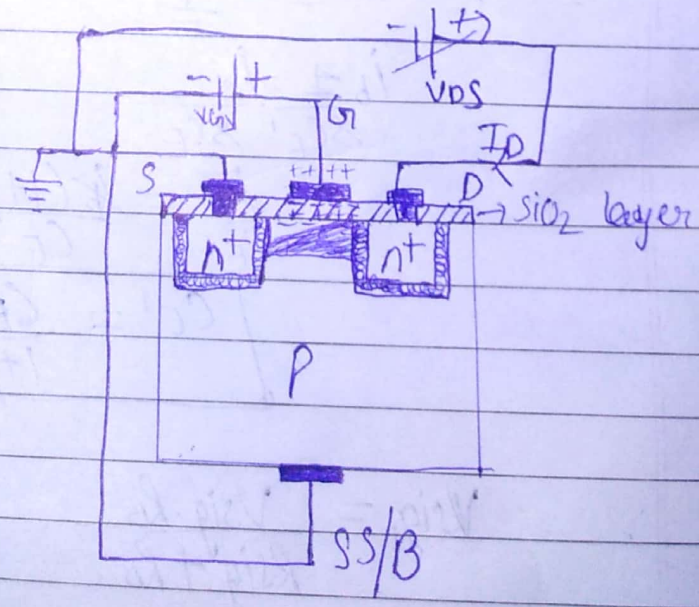 - +
- +
VDS
VGS
G
ID
++ ++
S
D
SiO2 layer
n+
n+
P
SS/B